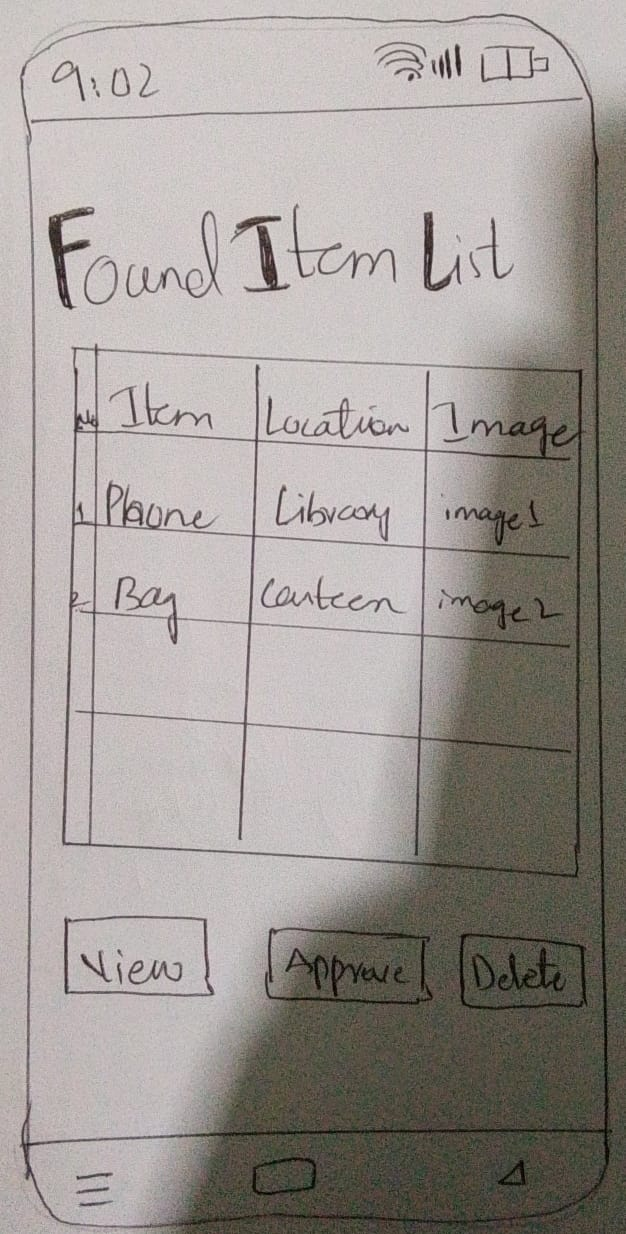 9:02
Found Item List
No Item Location Image
1 Phone Library image1
2 Bag Canteen image2
View Approve Delete